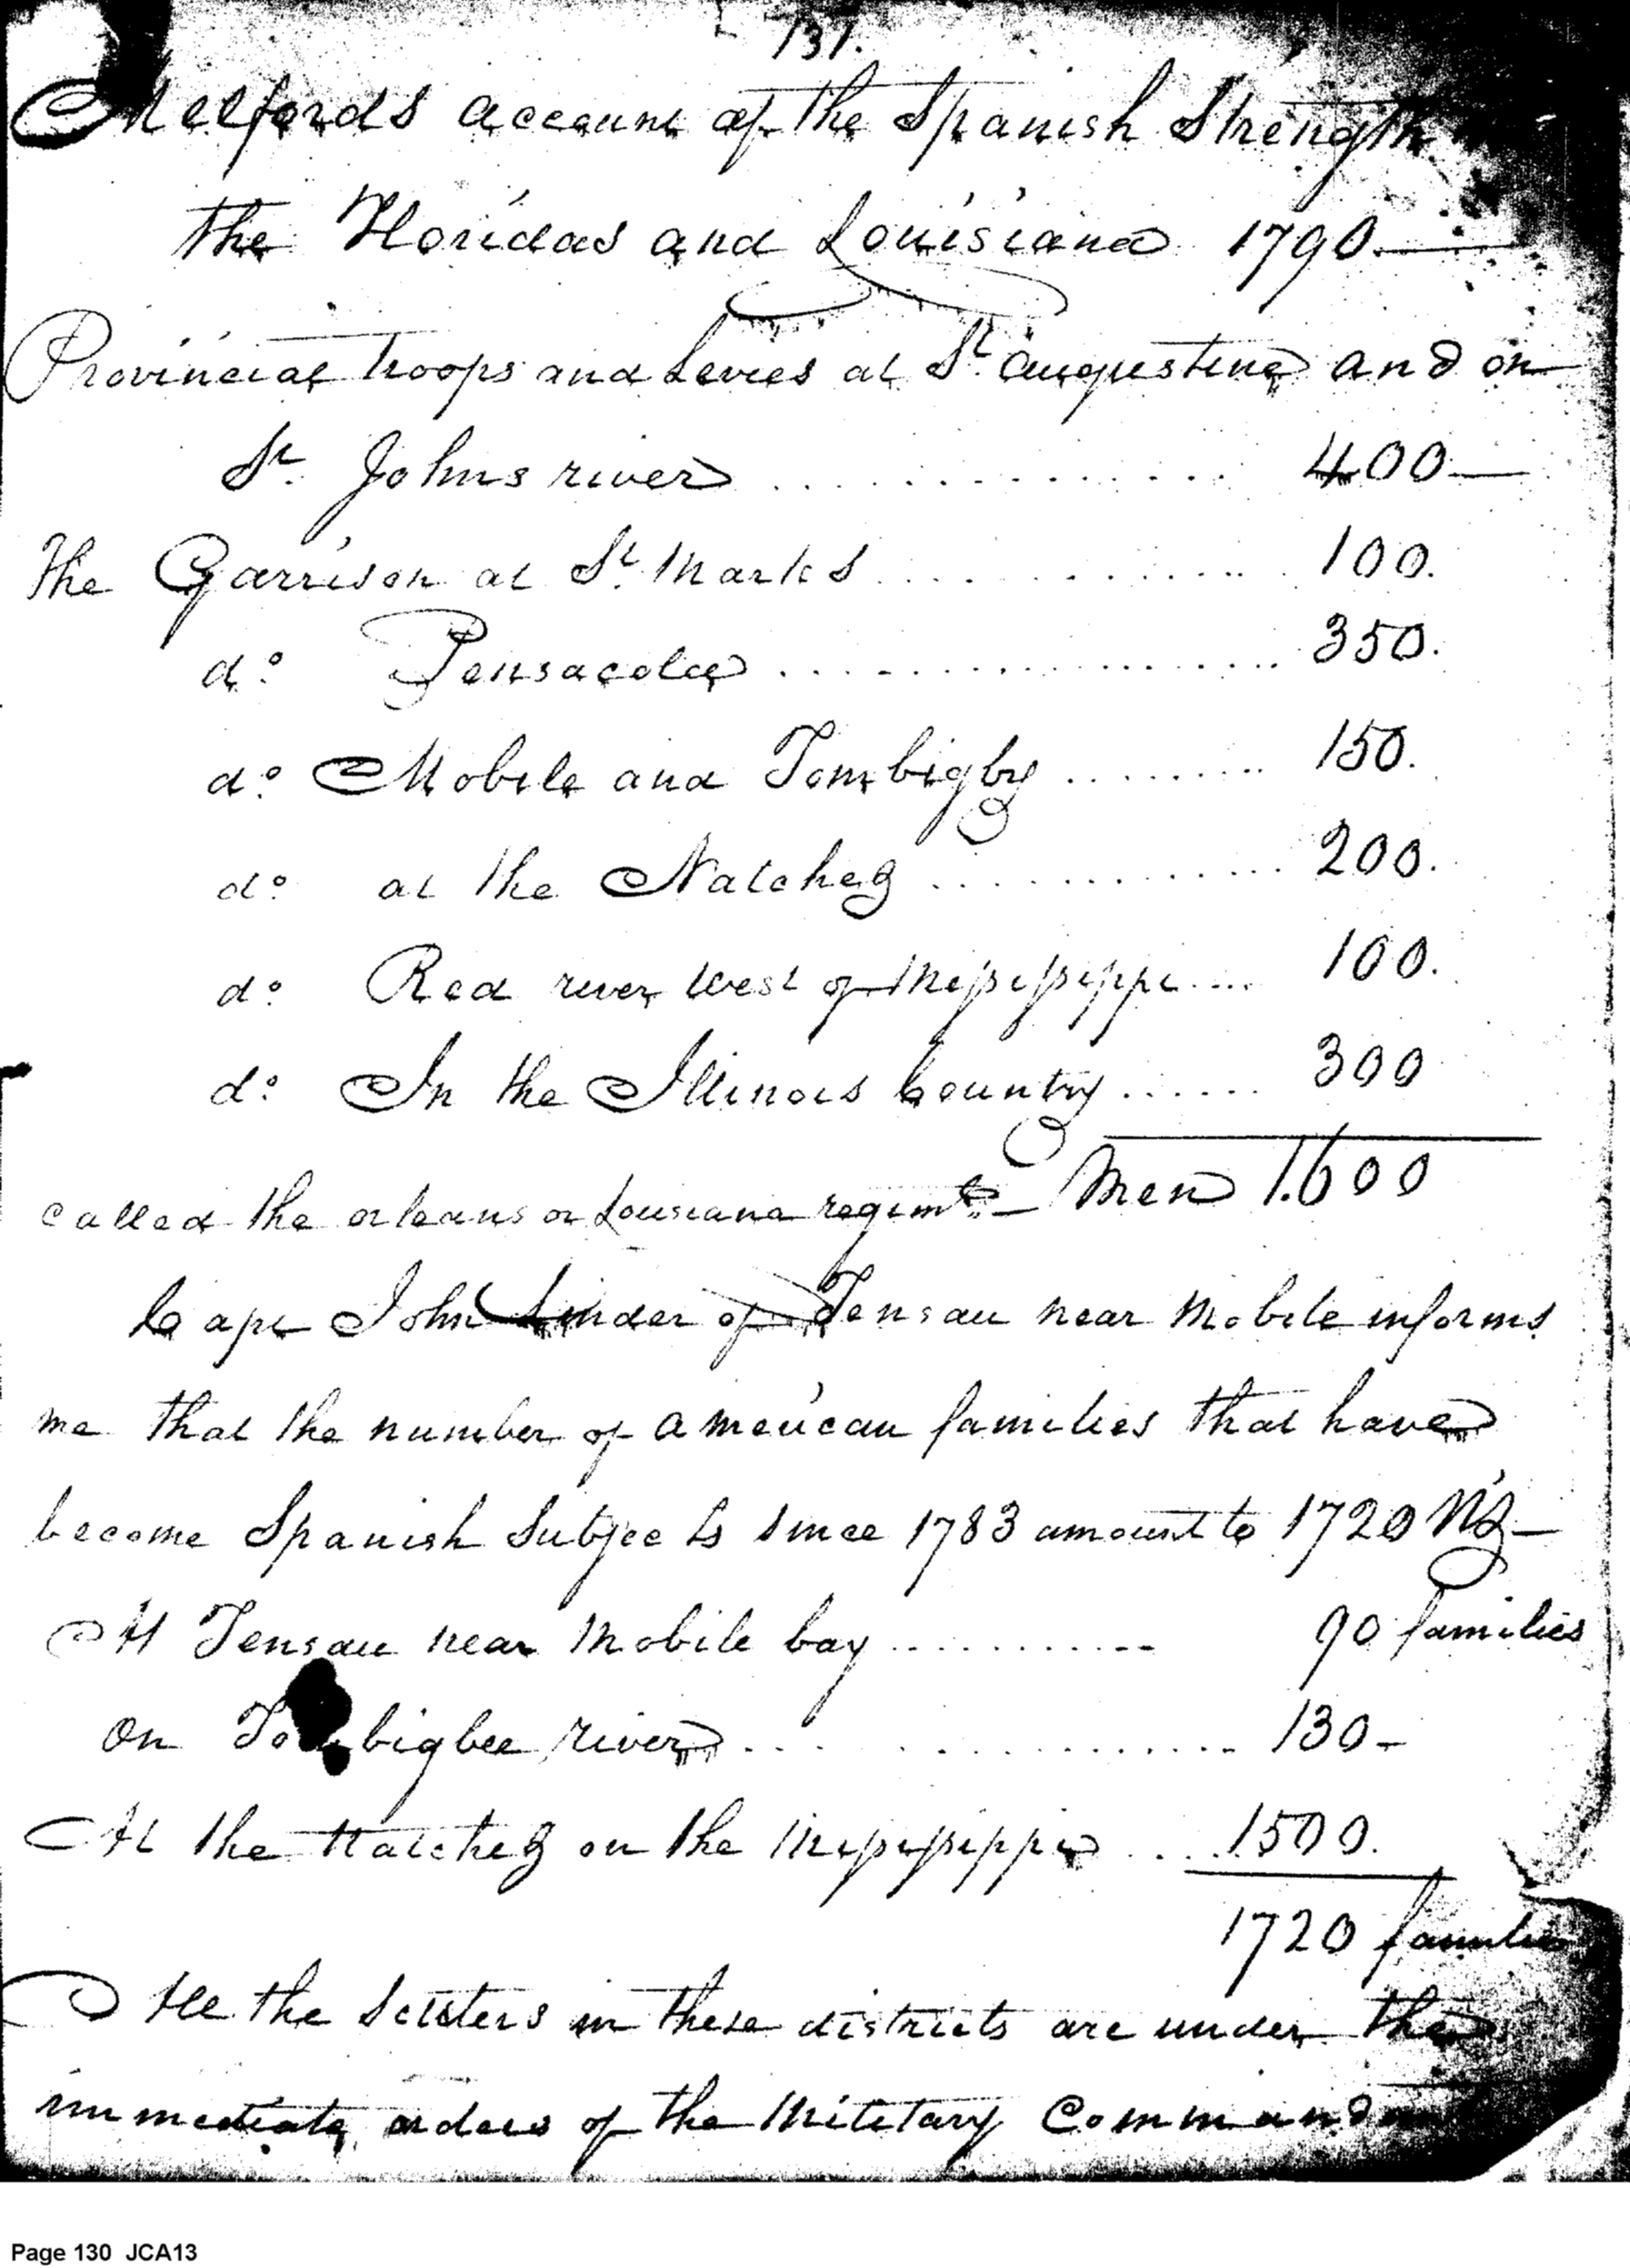 131.
Melfords account of the Spanish Strength
the Floridas and Louisiana 1790.—
Provincial troops and Levies at St. augustine and on
St. Johns river .............. 400—
The Garrison at St. Marks ............ 100.
do. Pensacola .................. 350.
do. Mobile and Tombigby ......... 150.
do. at the Natchez ............. 200.
do. Red river West of Missisippi .... 100.
do. In the Illinois Country ...... 300
called the orleans or Louisiana regimt. — Men 1.600
Capt John Linder of Tensau near Mobile informs
me that the number of american families that have
become Spanish Subjects since 1783 amount to 1720 Viz—
At Tensau near Mobile bay ........... 90 families
on Tombigbee river ................ 130—
At the Natchez on the Missisippi .... 1500.
1720 families
All the Settlers in these districts are under the
immediate orders of the Military
Page 130 JCA13